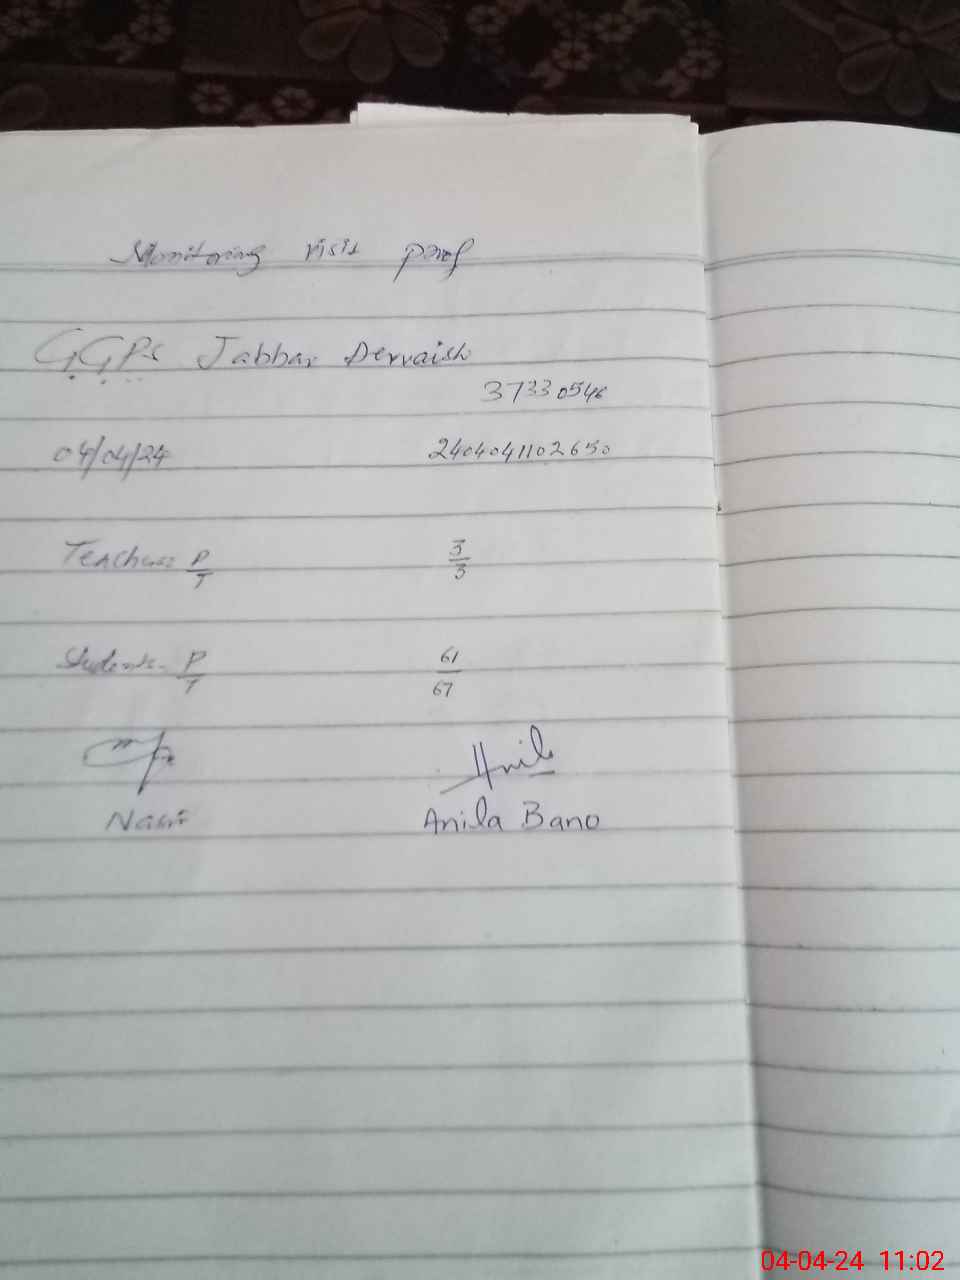 Monitoring visit proof
G.G.P.S Jabbar Dervaish
37330546
04/04/24 2404041102650
Teachers P/T 3/3
Students P/T 61/67
Anila
Nasir Anila Bano
04-04-24 11:02